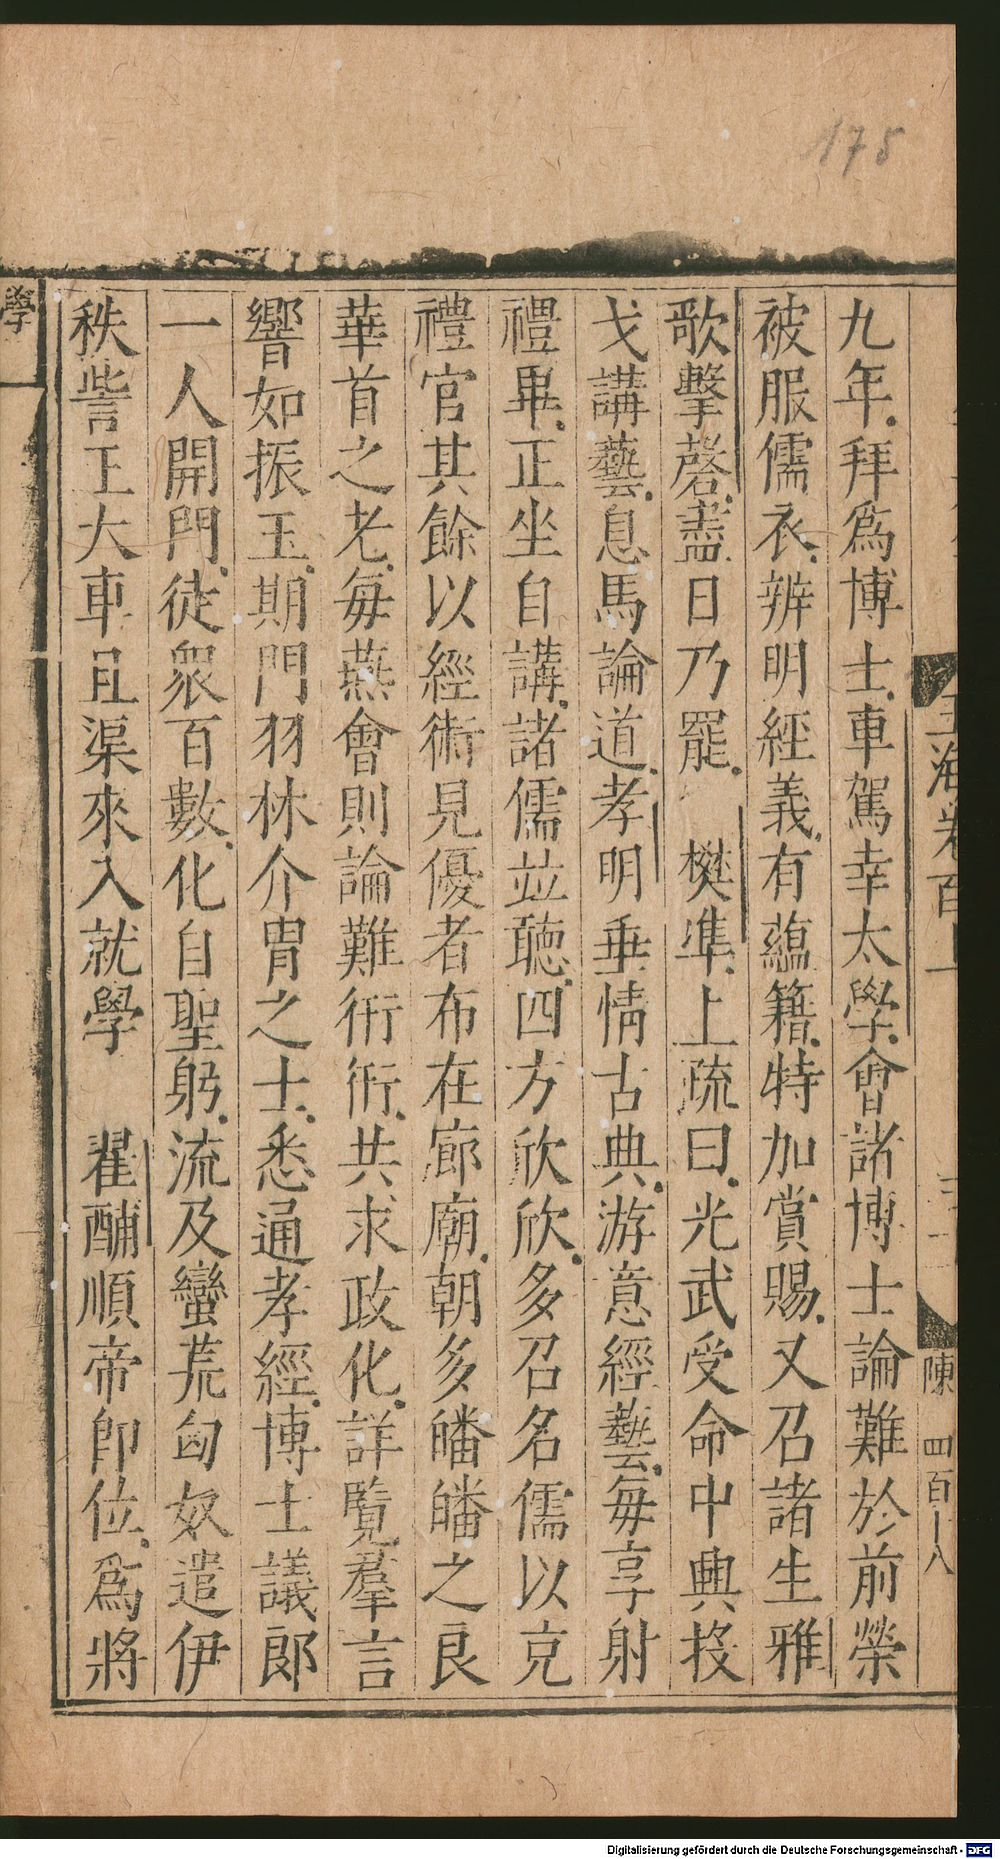 175
九年拜爲博士車駕幸太學會諸博士論難於前榮
被服儒衣辨明經義有蘊籍特加賞賜又召諸生雅
歌擊磬盡日乃罷　樊準上疏曰光武受命中興投
戈講藝息馬論道孝明垂情古典游意經藝每享射
禮畢正坐自講諸儒竝聽四方欣欣多召名儒以充
禮官其餘以經術見優者布在廊廟朝多皤皤之良
華首之老每燕會則論難衎衎共求政化詳覧羣言
響如振玉期門羽林介胄之士悉通孝經博士議郎
一人開門徒衆百數化自聖躬流及蠻荒匈奴遣伊
秩訾王大車且渠來入就學　翟酺順帝即位爲將
玉海卷百十一
陳
四百十八
學
Digitalisierung gefördert durch die Deutsche Forschungsgemeinschaft - DFG